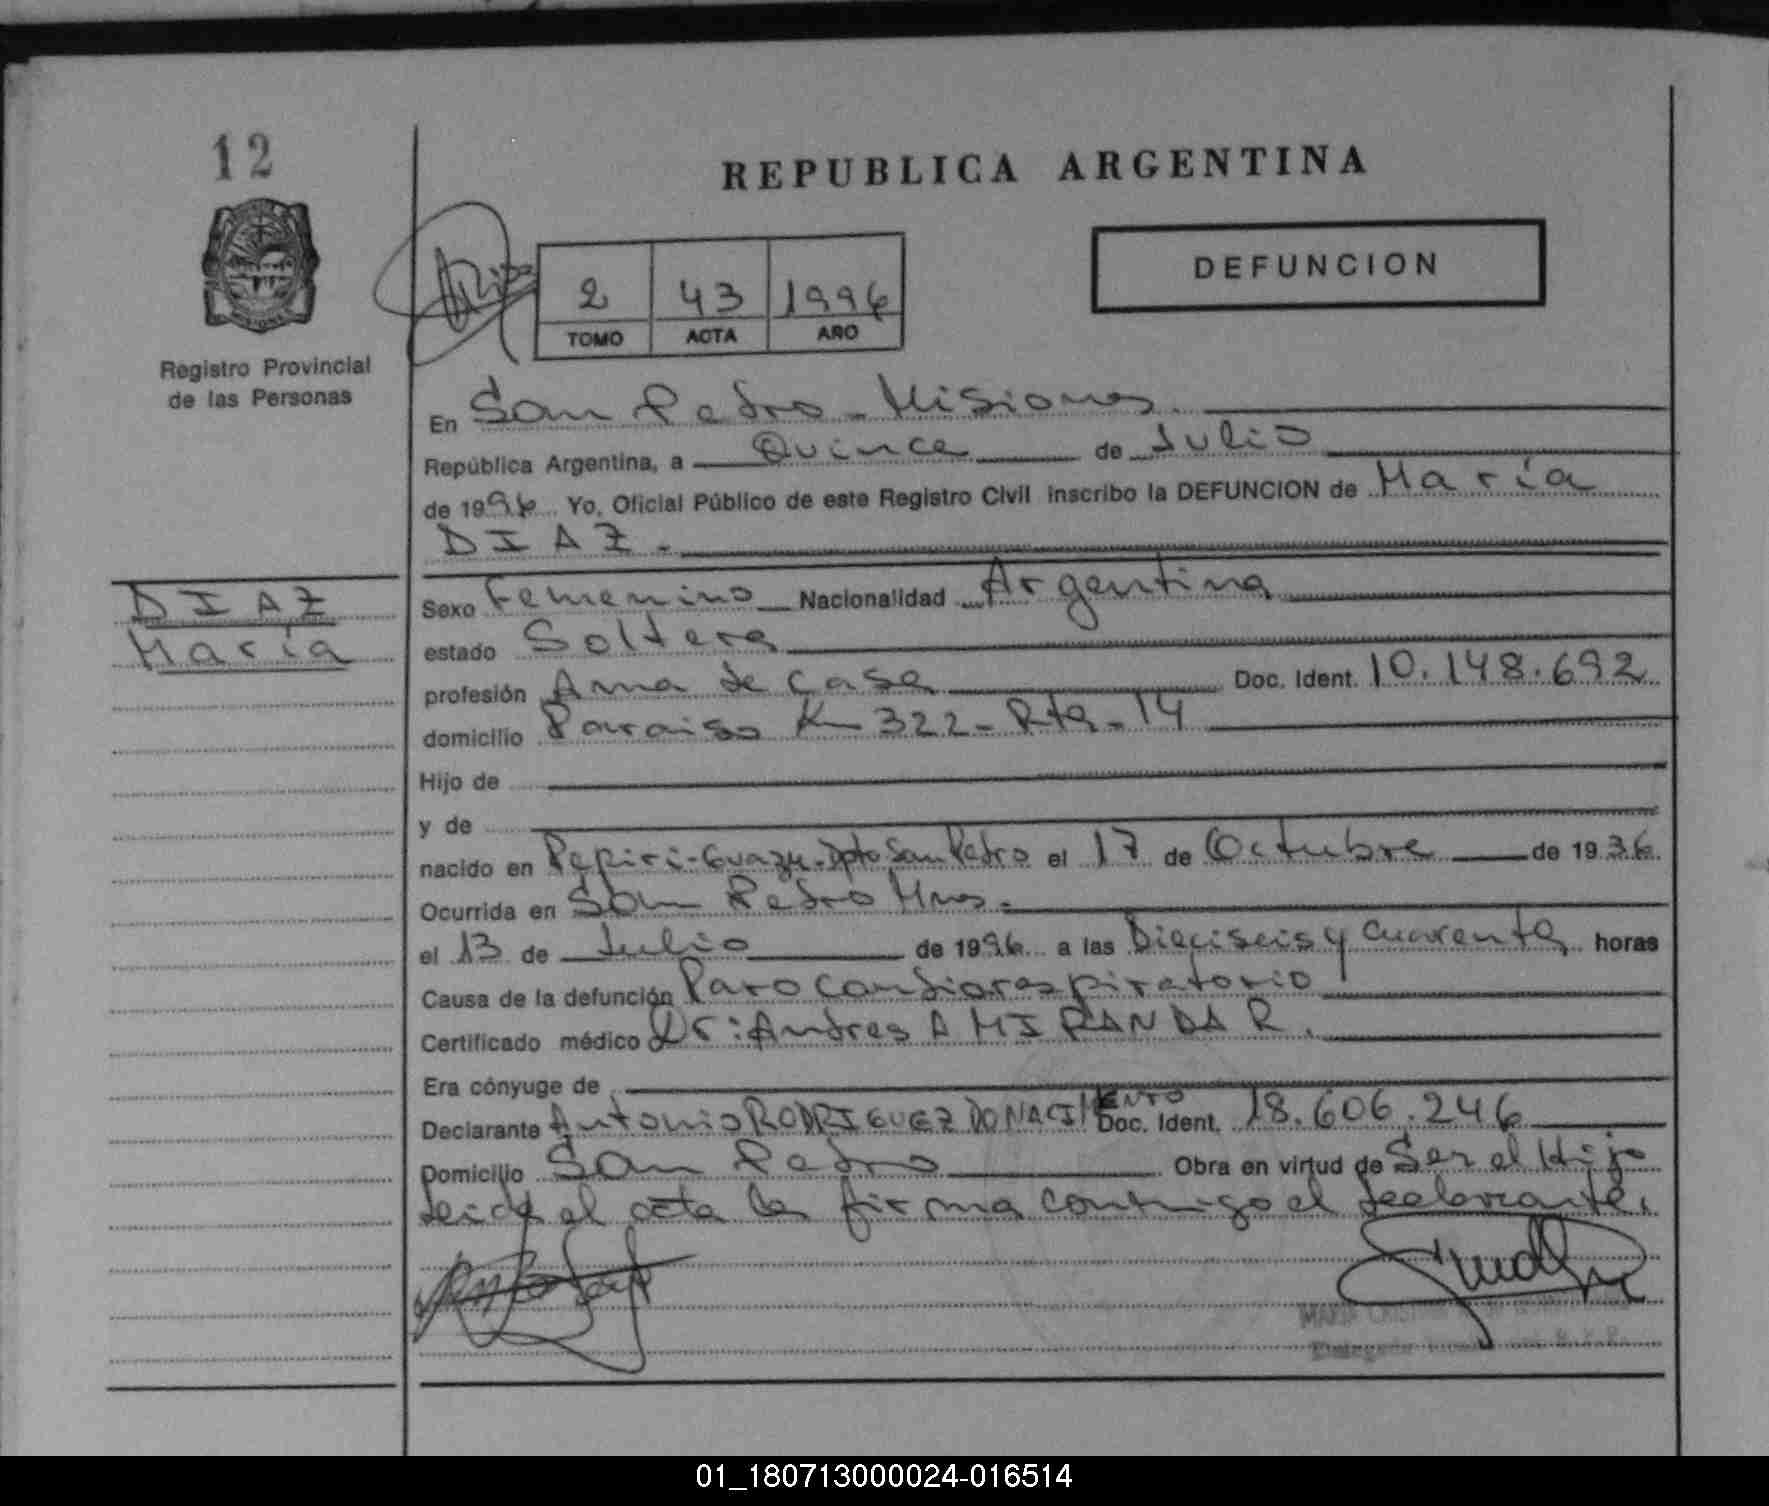 12
REPUBLICA ARGENTINA
DEFUNCION
2 43 1996
TOMO ACTA AÑO
Registro Provincial
de las Personas
En San Pedro - Misiones.
República Argentina, a Quince de Julio
de 1996 Yo, Oficial Público de este Registro Civil inscribo la DEFUNCION de María
DIAZ.-
DIAZ
María
Sexo Femenino Nacionalidad Argentina
estado Soltera
profesión Ama de casa Doc. Ident. 10.148.692
domicilio Paraiso Km 322 - Rta - 14
Hijo de
y de
nacido en Pepiri-Guazu-Dpto San Pedro el 17 de Octubre de 1936
Ocurrida en San Pedro Mnes.
el 13 de Julio de 1996 a las Dieciseis y cuarenta horas
Causa de la defunción Paro cardiorespiratorio
Certificado médico Dr: Andres A MIRANDA R.
Era cónyuge de
Declarante Antonio RODRIGUEZ DO NACIMENTO Doc. Ident. 18.606.246
Domicilio San Pedro Obra en virtud de Ser el Hijo
leida el acta la firma conmigo el declarante.
MARIA
01_180713000024-016514